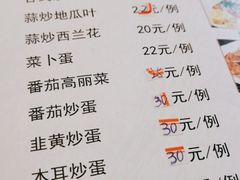 蒜炒地瓜叶 22元/例
蒜炒西兰花 20元/例
菜卜蛋 22元/例
番茄高丽菜 元/例
番茄炒蛋 30元/例
韭黄炒蛋 30元/例
木耳炒蛋 30元/例